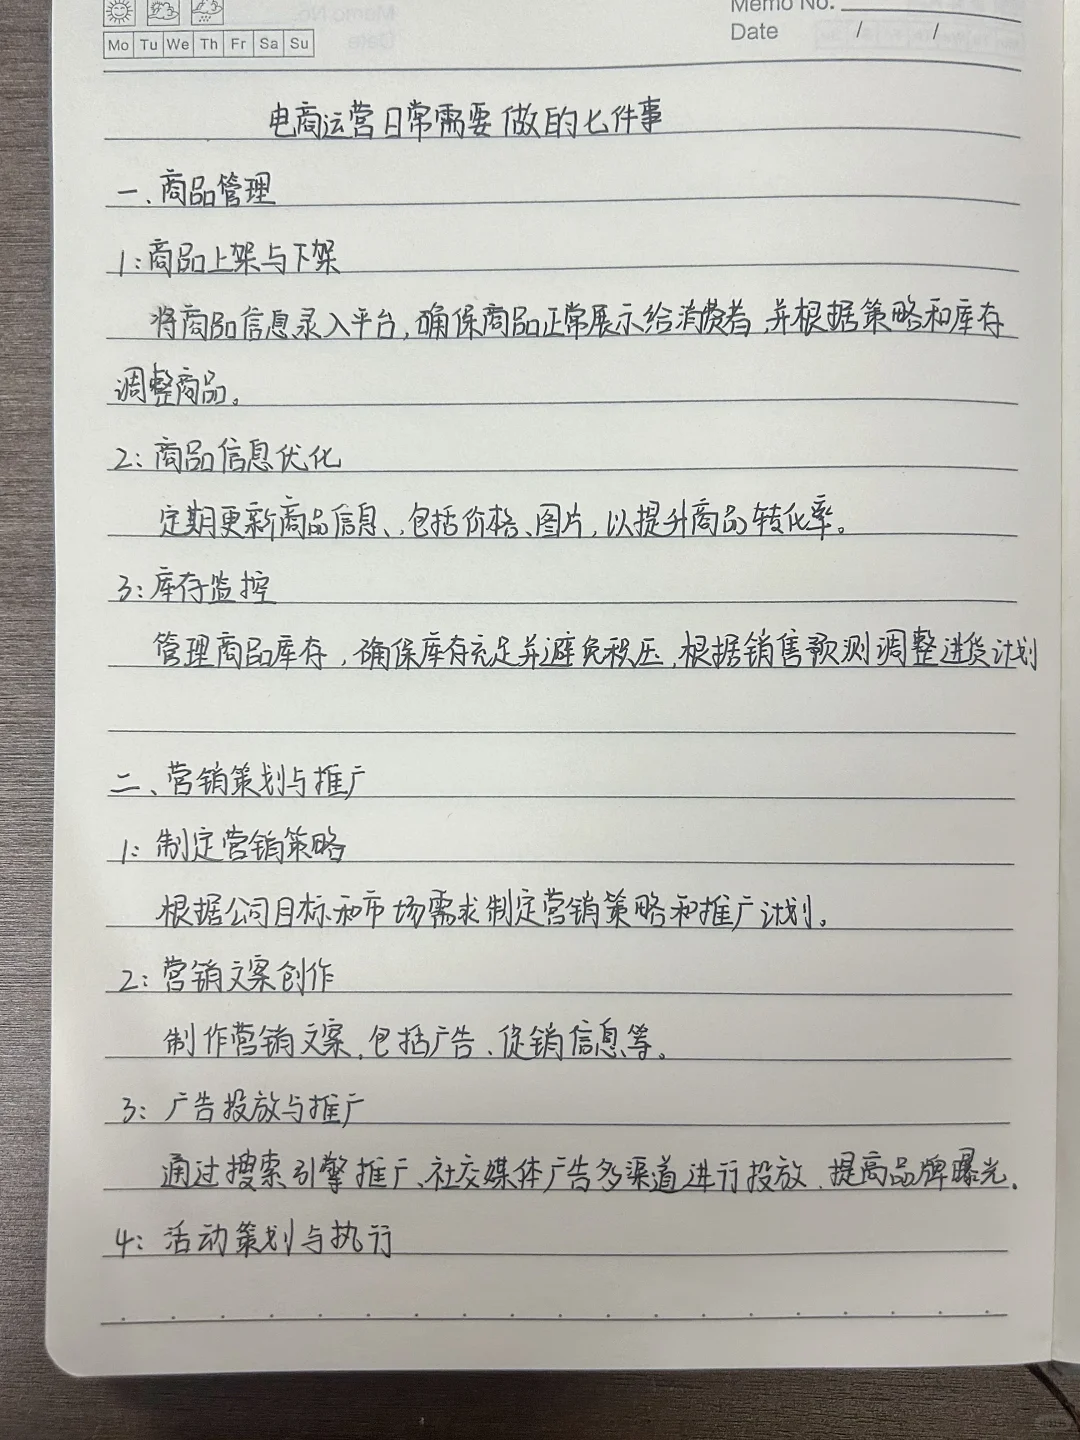 Memo No.
Mo Tu We Th Fr Sa Su
Date / /
电商运营日常需要做的七件事
一、商品管理
1:商品上架与下架
将商品信息录入平台,确保商品正常展示给消费者,并根据策略和库存
调整商品。
2:商品信息优化
定期更新商品信息、,包括价格、图片,以提升商品转化率。
3:库存监控
管理商品库存,确保库存充足并避免积压,根据销售预测调整进货计划
二、营销策划与推广
1:制定营销策略
根据公司目标和市场需求制定营销策略和推广计划。
2:营销文案创作
制作营销文案,包括广告、促销信息等。
3:广告投放与推广
通过搜索引擎推广、社交媒体广告多渠道进行投放,提高品牌曝光.
4:活动策划与执行